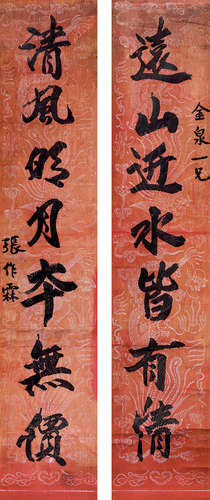 金泉一兄
遠山近水皆有情
清風明月本無價
張作霖